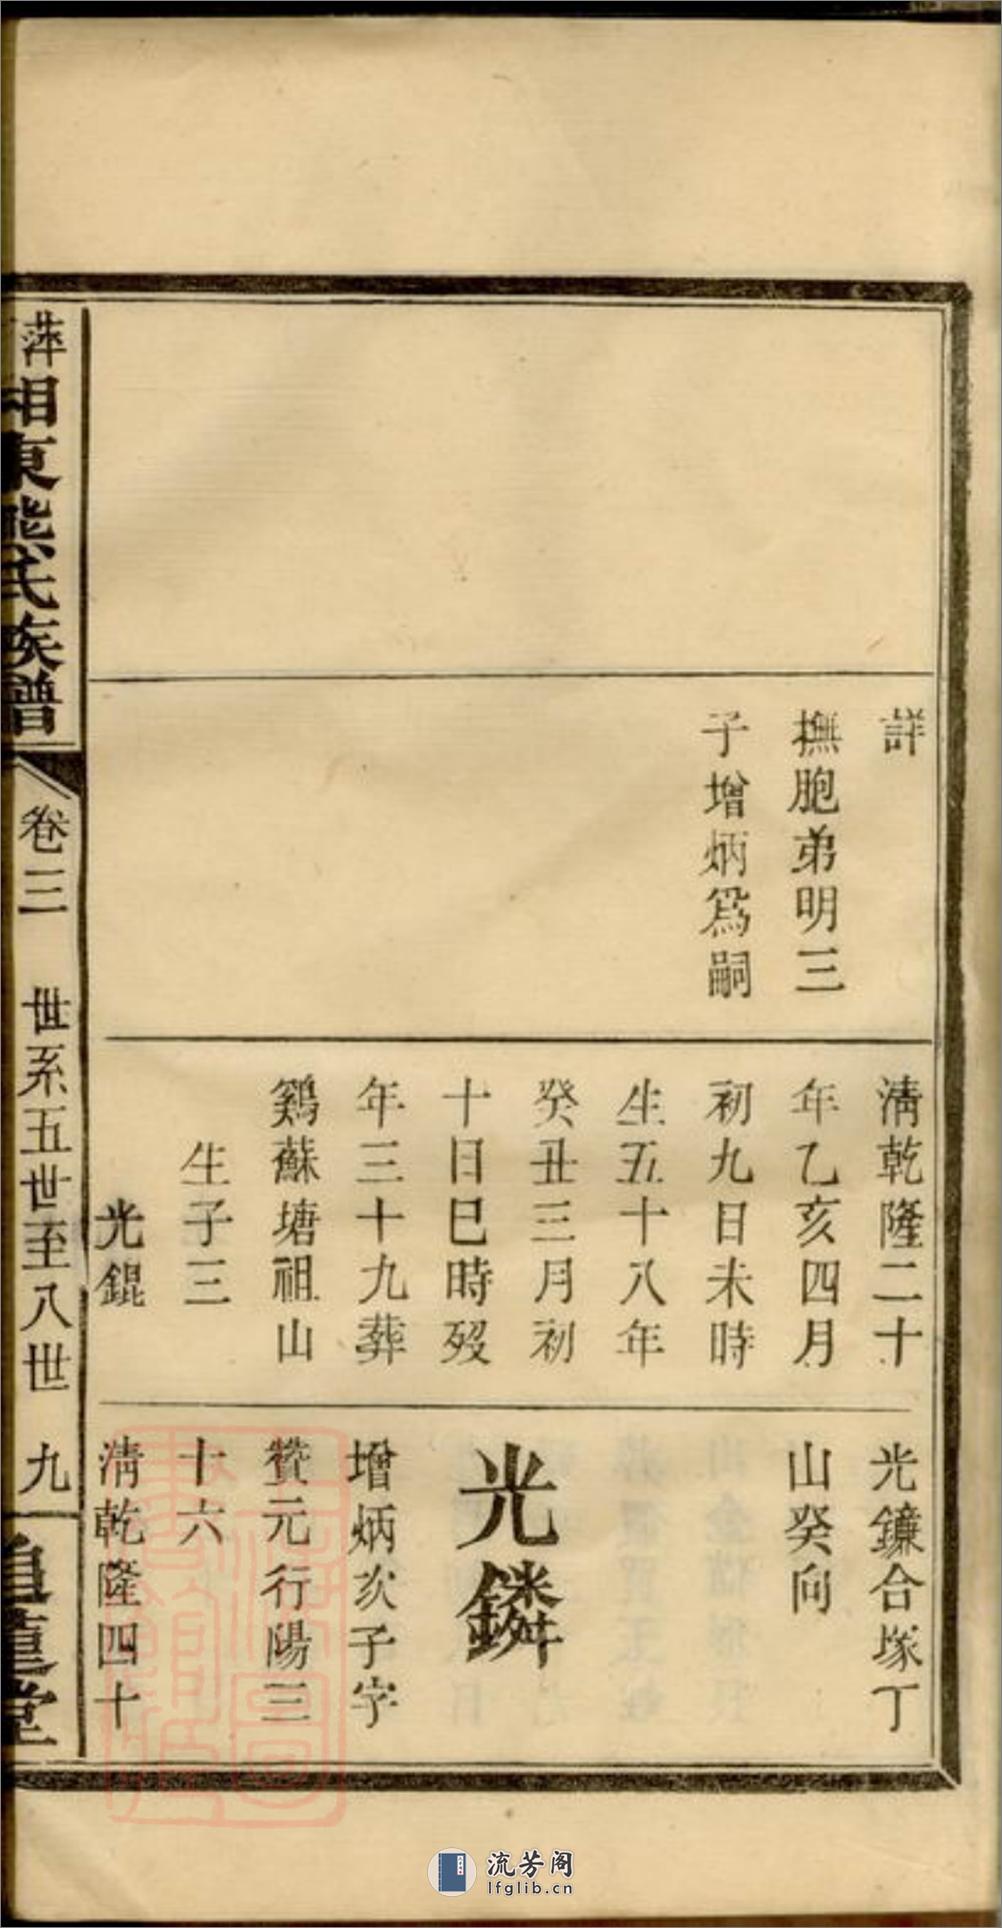 詳
撫胞弟明三
子增炳爲嗣
淸乾隆二十
年乙亥四月
初九日未時
生五十八年
癸丑三月初
十日巳時歿
年三十九葬
鷄蘇塘祖山
生子三
光錕
光鐮合塚丁
山癸向
光鏻
增炳次子字
贊元行陽三
十六
淸乾隆四十
萍相東熊氏族譜
卷三 世系五世至八世 九
堂
流芳阁
lfglib.cn